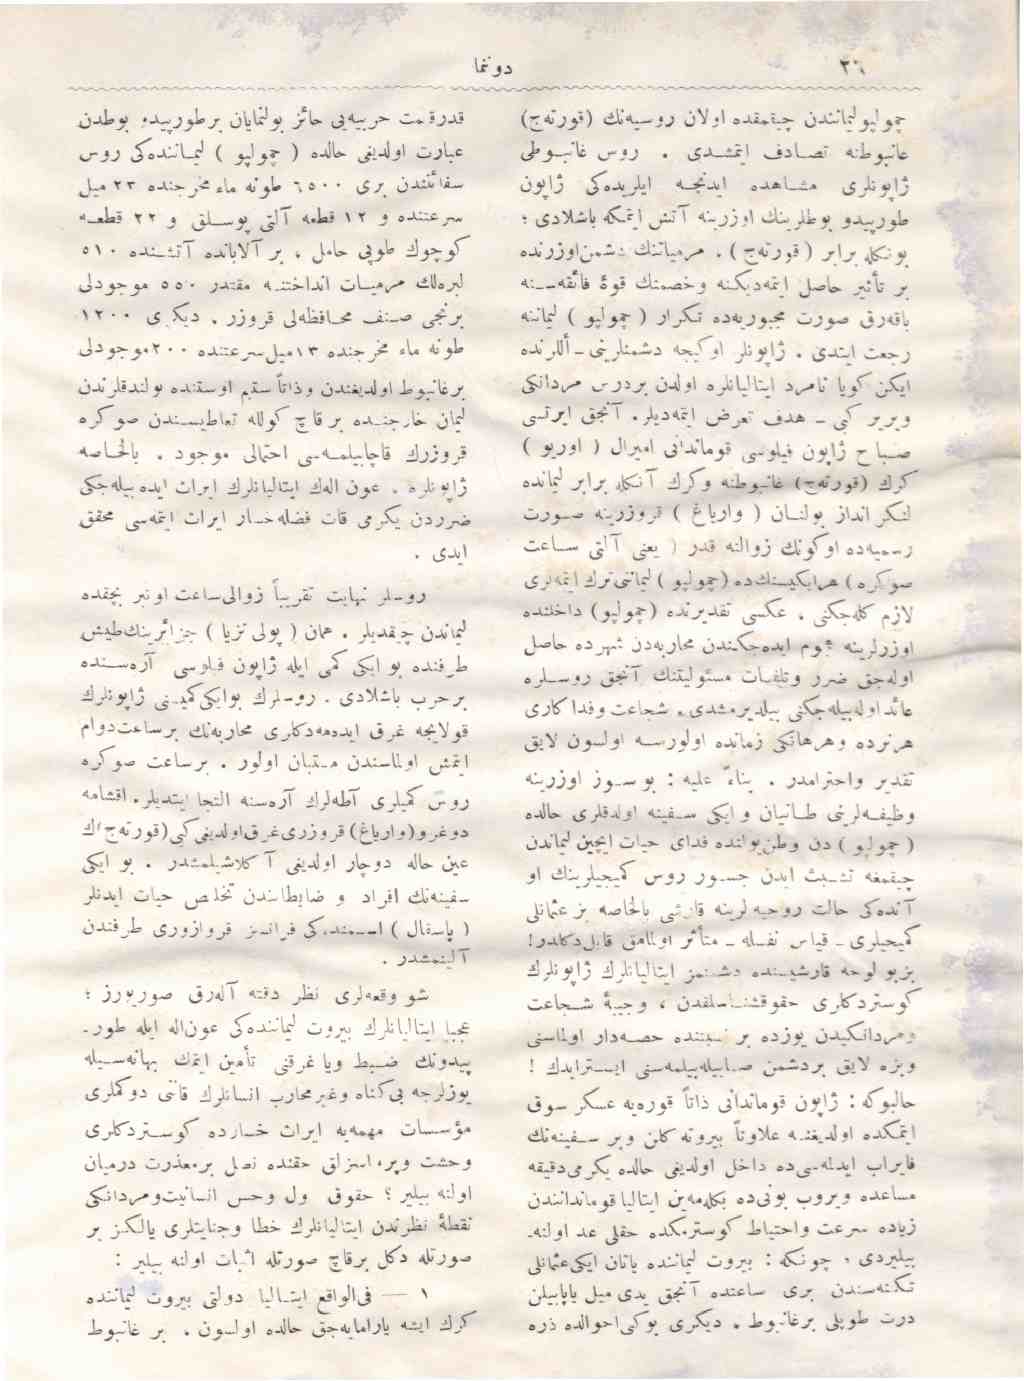 ٣٦
دوننما
چمولپو ليمانندن چيقمقده اولان روسيه‌نك (قورته‌ج)
غانبوطنه تصادف ايتمشدى . روس غانبوطى
ژاپونلرى مشاهده ايدنجه ايلريده‌كى ژاپون
طورپيدو بوطلرينك اوزرينه آتش ايتمكه باشلادى ؛
بونكله برابر ( قورته‌ج ) . مرمياتنك دشمن اوزرنده
بر تأثير حاصل ايتمه‌ديكنه وخصمنك قوۀ فائقه‌سنه
باقه‌رق صورت مجبوريه‌ده تكرار ( چمولپو ) ليماننه
رجعت ايتدى . ژاپونلر اوكيجه دشمنلرينى ـ أللرنده
ايكن كويا نامرد ايتاليانلره اولدن بردرس مردانكى
ويرير كبى ـ هدف تعرض ايتمه‌ديلر. آنجق ايرتسى
صباح ژاپون فيلوسى قوماندانى اميرال ( اوريو )
كرك (قورته‌ج) غانبوطنه وكرك آنكله برابر ليمانده
لنكر انداز بولنان ( وارياغ ) قروزرينه صورت
رسميه‌ده اوكونك زوالنه قدر ( يعنى آلتى ساعت
صوكره ) هرايكيسنك‌ده (چمولپو ) ليماننى ترك ايتمه‌لرى
لازم كله‌جكنى ، عكسى تقديرنده (چمولپو) داخلنده
اوزرلرينه هجوم ايده‌جكندن محاربه‌دن شهرده حاصل
اوله‌جق ضرر وتلفيات مسئوليتنك آنجق روسلره
عائد اوله‌بيله‌جكنى بيلديرمشدى. شجاعت وفداكارى
هرنرده وهرهانكى زمانده اولورسه اولسون لايق
تقدير واحترامدر . بناءً عليه : بو سوز اوزرينه
وظيفه‌لرينى طانيان وايكى سفينه اولدقلرى حالده
( چمولپو ) دن وطن يولنده فداى حيات ايچين ليماندن
چيقمغه تشبث ايدن جسور روس كميجيلرينك او
آنده‌كى حالت روحيه‌لرينه قارشى بالخاصه بز عثمانلى
كميجيلرى ـ قياس نفسله ـ متأثر اولمامق قابل دكلدر!
بزبو لوحه قارشيسنده دشمنمز ايتاليانلرك ژاپونلرك
كوستردكلرى حقوقشناسلقدن ، وجيبۀ شجاعت
ومردانكيدن يوزده بر نسبتنده حصه‌دار اولماسنى
وبزه لايق بردشمن صاييله‌بيلمه‌سنى ايستردك !
حالبوكه : ژاپون قوماندانى ذاتاً قوره‌يه عسكر سوق
ايتمكده اولديغنه علاوتاً بيروته كلن وبر سفينه‌نك
فايراب ايدلمه‌سى‌ده داخل اولديغى حالده يكرمى دقيقه
مساعده ويروب بونى‌ده بكلمه‌مين ايتاليا قوماندانندن
زياده سرعت واحتياط كوسترمكده حقلى عد اولنه‌
بيليردى ، چونكه : بيروت ليماننده ياتان ايكى عثمانلى
تكنه‌سندن برى ساعتده آنجق يدى ميل ياپابيلن
درت طوپلى برغانبوط . ديكرى بوكى احوالده ذره
قدر قيمت حربيه‌يى حائز بولنمايان برطورپيدو بوطدن
عبارت اولديغى حالده ( چمولپو ) ليماننده‌كى روس
سفائنندن برى ٦٥٠٠ طونه ماء مخرجنده ٢٣ ميل
سرعتنده و ١٢ قطعه آلتى پوسلق و ٢٢ قطعه
كوچوك طوپى حامل ، بر آلاباندە آتشنده ٥١٠
ليره‌لك مرميات انداختنه مقتدر ٥٥٠ موجودلى
برنجى صنف محافظه‌لى قروزر . ديكرى ١٢٠٠
طونه ماء مخرجنده ١٣ميل سرعتنده ٢٠٠ موجودلى
برغانبوط اولديغندن وذاتاً سقيم اوستنده بولندقلرندن
ليمان خارجنده بر قاچ كولله تعاطيسندن صوكره
قروزرك قاچابيلمه‌سى احتمالى موجود . بالخاصه
ژاپونلره . عون الهك ايتاليانلرك ايراث ايده بيله‌جكى
ضرردن يكرمى قات فضله خسار ايراث ايتمه‌سى محقق
ايدى .
روسلر نهايت تقريباً زوالى ساعت اونبر بچقده
ليماندن چيقديلر . همان ( پولى نزيا ) جزائرينك طيش
طرفنده بو ايكى كمى ايله ژاپون فيلوسى آره‌سنده
برحرب باشلادى . روسلرك بوايكى كميسنى ژاپونلرك
قولايجه غرق ايده‌مه‌دكلرى محاربه‌نك برساعت دوام
ايتمش اولماسندن مستبان اولور . برساعت صوكره
روس كميلرى آطه‌لرك آره‌سنه التجا ايتديلر. اقشامه
دوغرو (وارياغ) قروزرى غرق اولديغى كبى (قورته‌ج) ك
عين حاله دوچار اولديغى آكلاشيلمشدر . بو ايكى
سفينه‌نك افراد و ضابطانندن تخليص حيات ايدنلر
( پاسقال ) اسمنده‌كى فرانسز قروازورى طرفندن
آلينمشدر .
شو وقعه‌لرى نظر دقته آله‌رق صوريورز ؛
عجبا ايتاليانلرك بيروت ليماننده‌كى عون اله ايله طور‌
پيدونك ضبط ويا غرقنى تأمين ايتمك بهانه‌سيله
يوزلرجه بى‌كناه وغيرمحارب انسانلرك قاننى دوكملرى
مؤسسات مهمه‌يه ايراث خسارده كوستردكلرى
وحشت وبربرلق حقنده نصل برمعذرت درميان
اولنه بيلير ؟ حقوق دول وحس انسانيت‌ومردانكى
نقطۀ نظرندن ايتاليانلرك خطا وجنايتلرى يالكز بر
صورتله دكل برقاچ صورتله اثبات اولنه بيلير :
١ — فى‌الواقع ايتاليا دولتى بيروت ليماننده
كرك ايشه يارامايه‌جق حالده اولسون . بر غانبوط